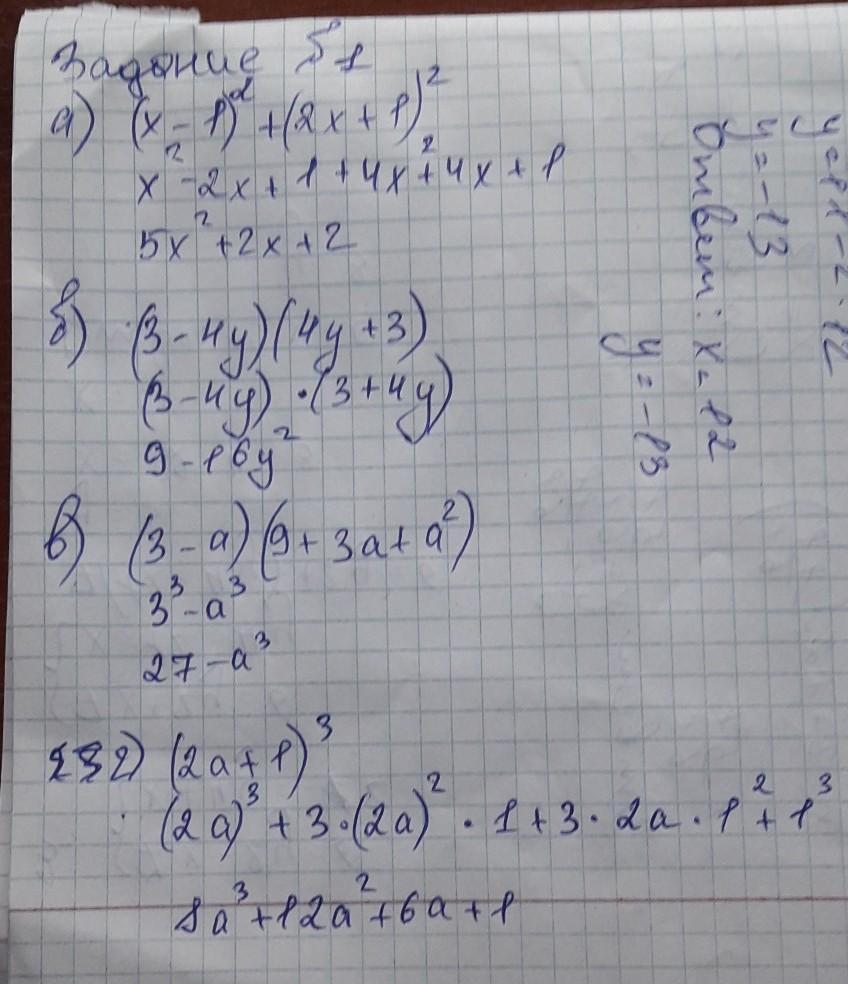 Задание Б1
а) (x - 1)² + (2x + 1)²
x² - 2x + 1 + 4x² + 4x + 1
5x² + 2x + 2
б) (3 - 4y)(4y + 3)
(3 - 4y) · (3 + 4y)
9 - 16y²
в) (3 - a)(9 + 3a + a²)
3³ - a³
27 - a³
г) (2a + 1)³
(2a)³ + 3·(2a)² · 1 + 3 · 2a · 1² + 1³
8a³ + 12a² + 6a + 1
y = 11 - 2 · 12
y = -13
Ответ: x = 12
y = -13